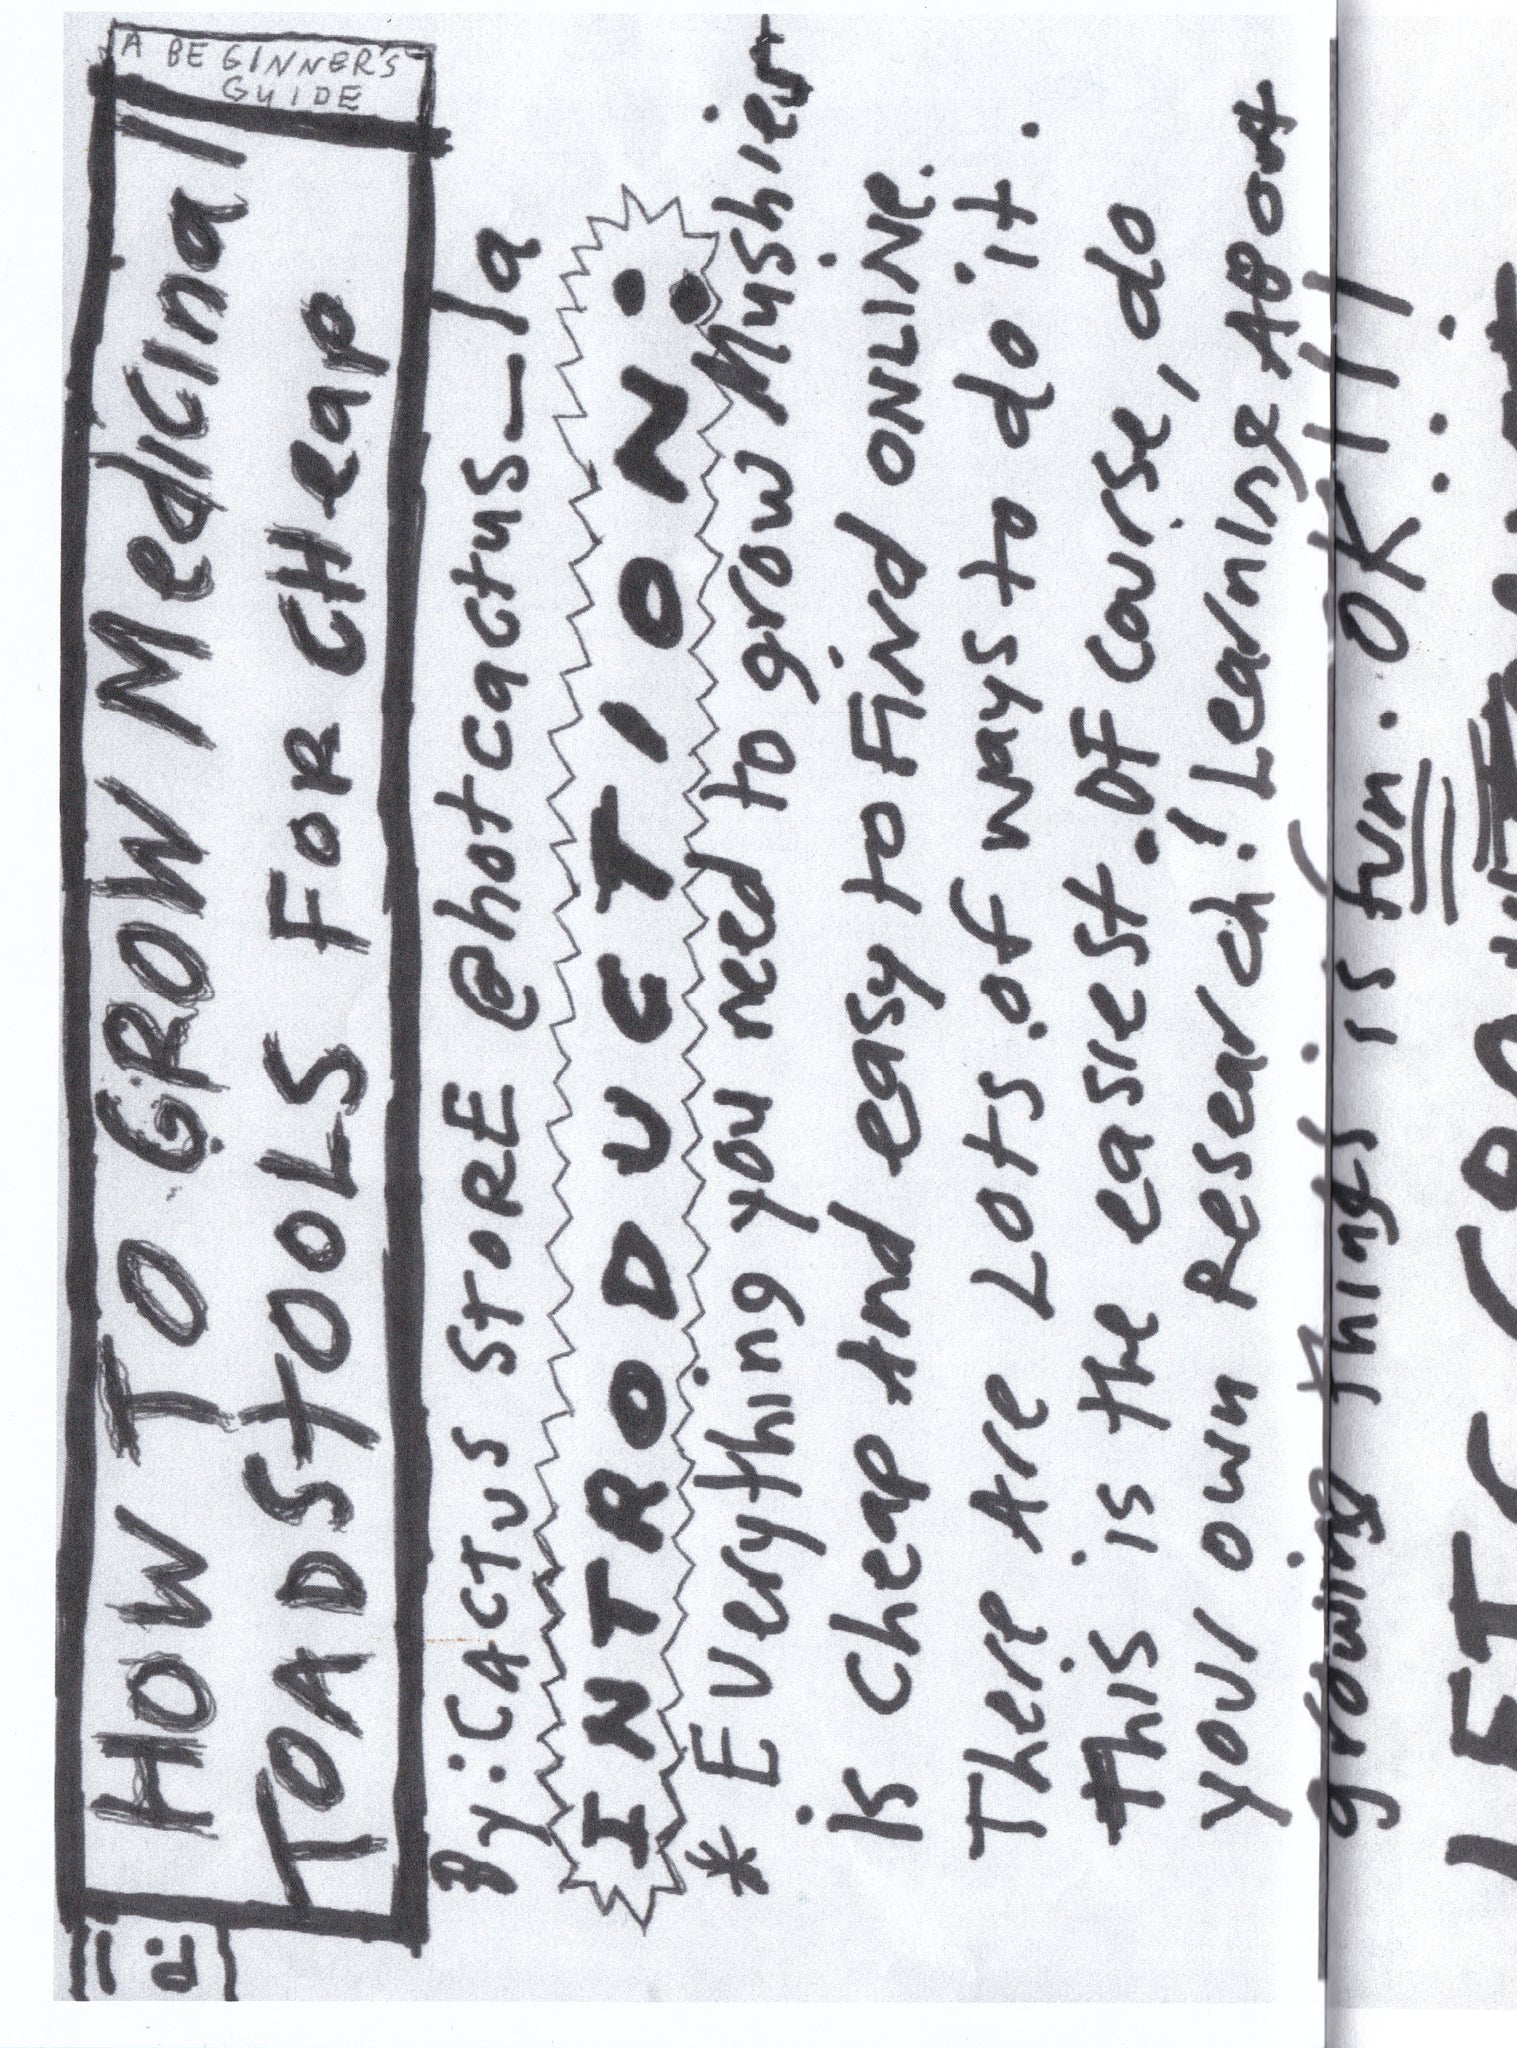 HOW TO GROW Medicinal
TOADSTOOLS FOR CHEAP
A BEGINNER'S
GUIDE
By: CACTUS STORE @hotcactus_la
INTRODUCTION:
* Everything you need to grow Mushies
is cheap And easy to Find ONLINE.
There Are Lots of ways to do it.
this is the easiest. Of course, do
your own research! Learning About
growing things is fun. OK!!!